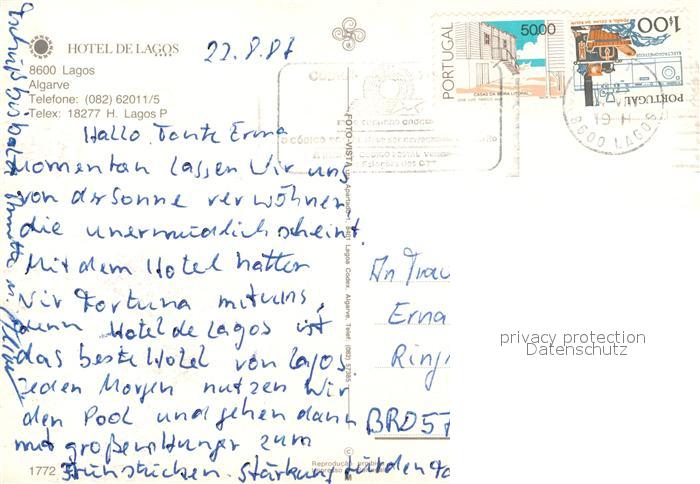 HOTEL DE LAGOS
8600 Lagos
Algarve
Telefone: (082) 62011/5
Telex: 18277 H. Lagos P
22.8.87
PORTUGAL
50.00
CASAS DA BEIRA LITORAL
1$00
PORTUGAL
8600 LAGOS
Hallo Tante Erna
Momentan lassen Wir uns
von der Sonne verwöhnen
die unermüdlich scheint.
Mit dem Hotel hatten
Wir Fortuna mit uns,
denn Hotel de Lagos ist
das beste Hotel von Lagos.
Jeden Morgen nutzen Wir
den Pool und gehen dann
mit großen Hunger zum
Frühstücken. Stärkung für den Ta
bis bald
FOTO-VISTA
An Frau
Erna
Ring
BRD 57
privacy protection
Datenschutz
1772